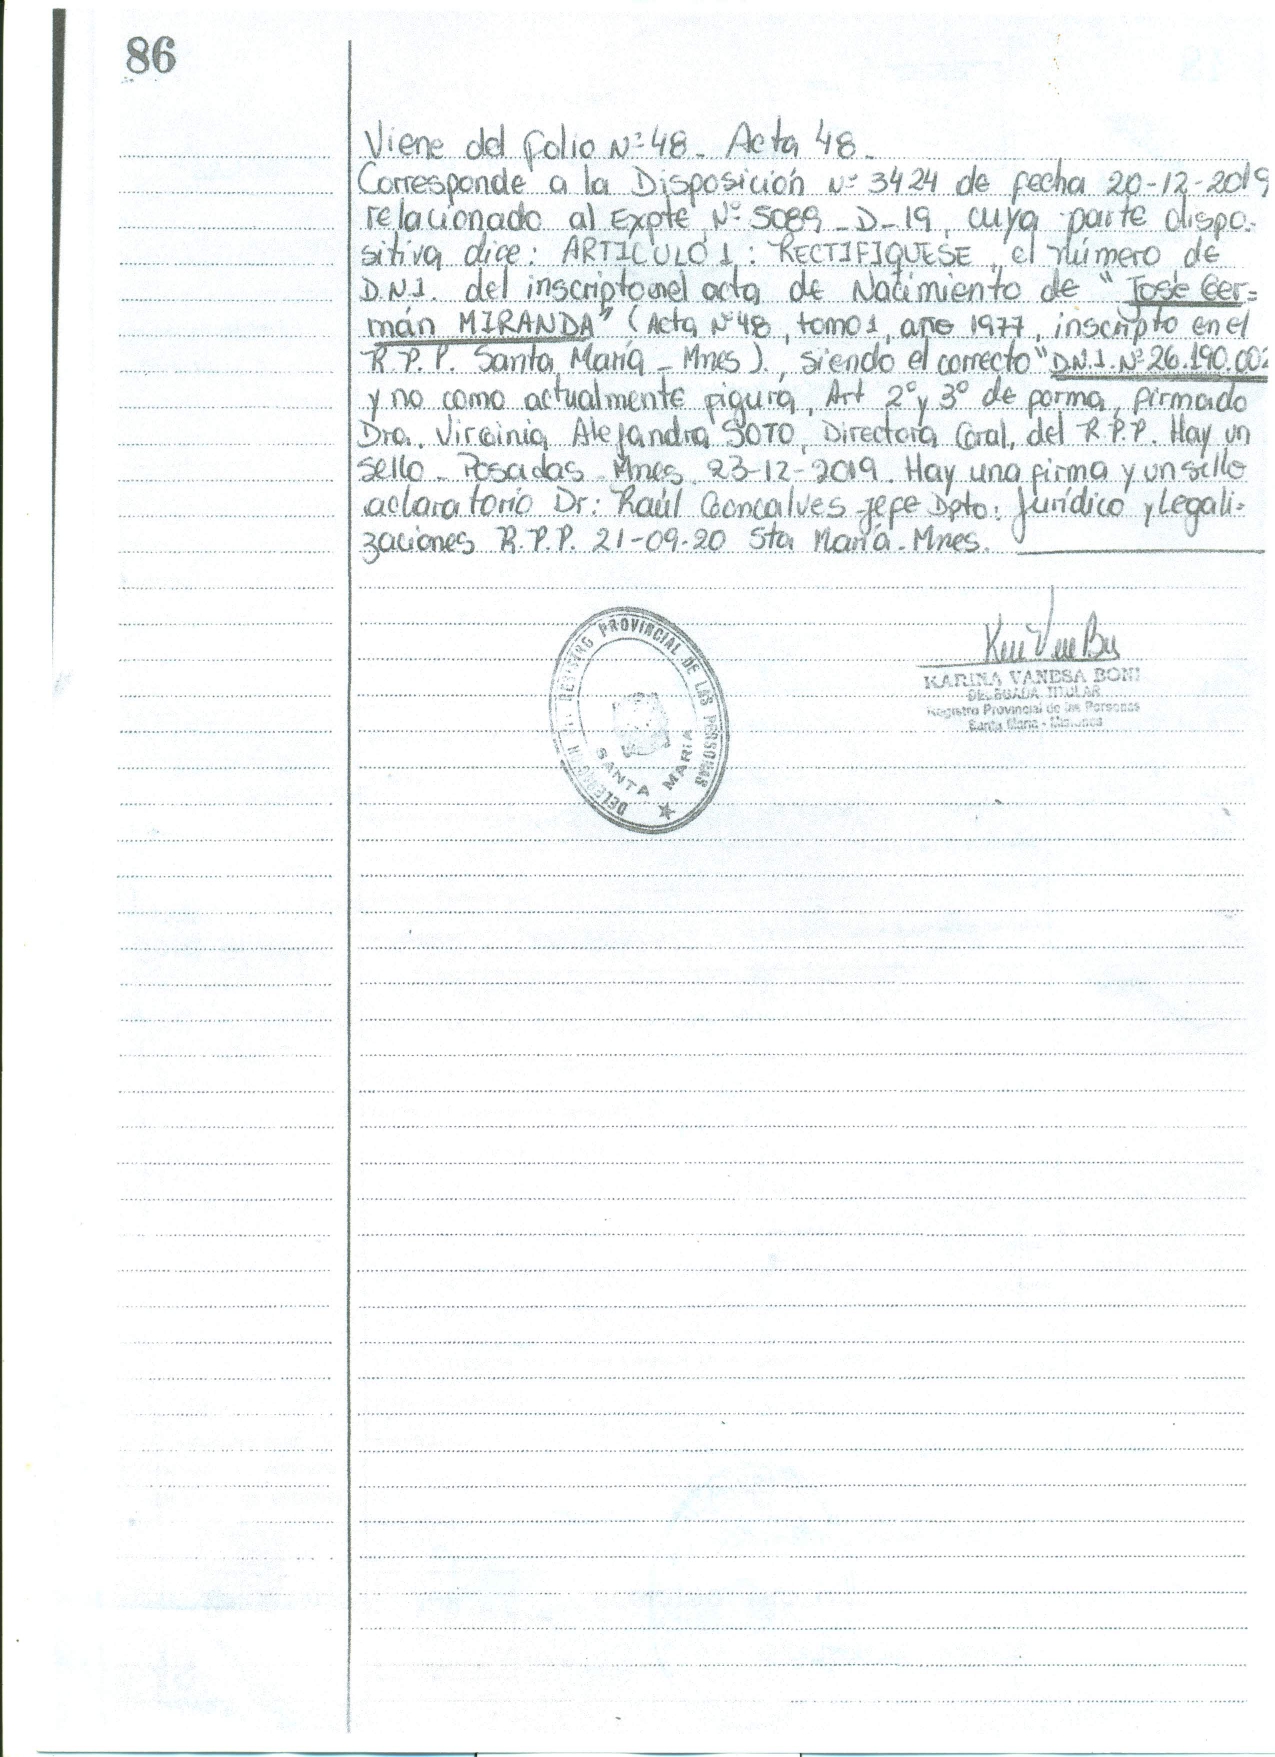 86
Viene del folio Nº 48. Acta 48.
Corresponde a la Disposición Nº 3424 de fecha 20-12-2019
relacionado al Expte Nº 5089-D-19, cuya parte dispo-
sitiva dice: ARTICULO 1: RECTIFIQUESE, el número de
D.N.I. del inscripto en el acta de Nacimiento de "José Ger=
mán MIRANDA" (Acta Nº 48, tomo 1, año 1977, inscripto en el
R.P.P. Santa María - Mnes)., siendo el correcto "D.N.I. Nº 26.190.002
y no como actualmente figura, Art 2º y 3º de forma, firmado
Dra. Virginia Alejandra SOTO, Directora Gral, del R.P.P. Hay un
sello - Posadas Mnes 23-12-2019. Hay una firma y un sello
aclaratorio Dr: Raúl Goncalves Jefe Dpto: Jurídico y Legali-
zaciones R.P.P. 21-09-20 Sta María-Mnes.
DELEGACION REGISTRO PROVINCIAL DE LAS PERSONAS
SANTA MARIA
KARINA VANESA BONI
DELEGADA TITULAR
Registro Provincial de las Personas
Santa María - Misiones